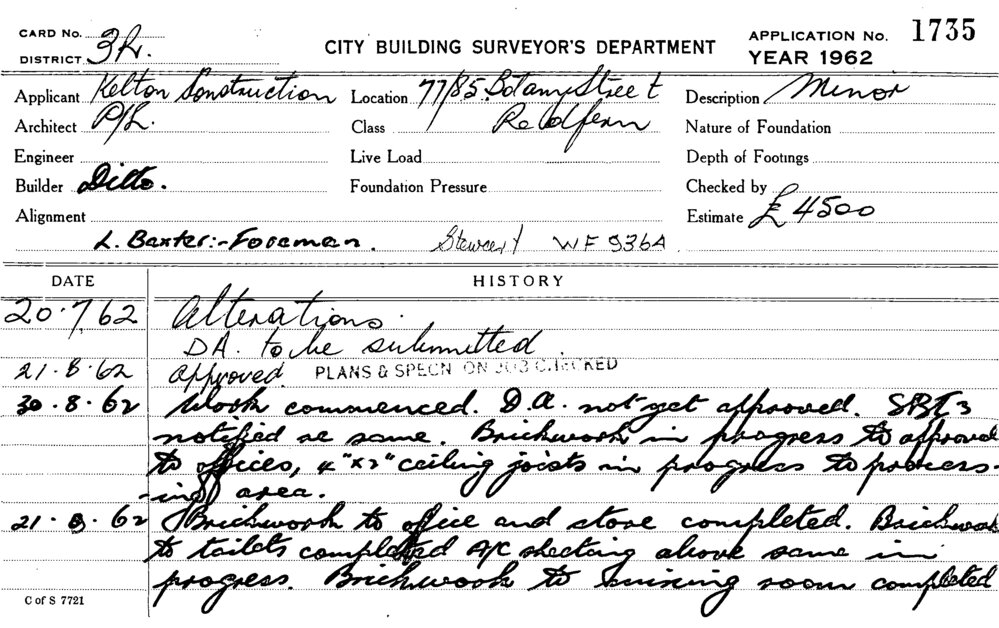 CARD No.
DISTRICT 3R.
CITY BUILDING SURVEYOR'S DEPARTMENT
APPLICATION No. 1735
YEAR 1962
Applicant Kelton Construction Location 77/85 Botany Street Description Minor
Architect P/L. Class Redfern Nature of Foundation
Engineer Live Load Depth of Footings
Builder Ditto. Foundation Pressure Checked by
Alignment Estimate £4500
L. Baxter:- Foreman. Stewart WF 9364
DATE HISTORY
20.7.62 Alterations.
DA. to be submitted.
21.8.62 Approved. PLANS & SPECN ON JOB CHECKED
30.8.62 Work commenced. D.A. not yet approved. SBI 3
notified re same. Brickwork in progress to approved
to offices, 4"x2" ceiling joists in progress to process-
-ing area.
21.9.62 Brickwork to office and store completed. Brickwork
to toilets completed A/C sheeting above same in
progress. Brickwork to mixing room completed
C of S 7721